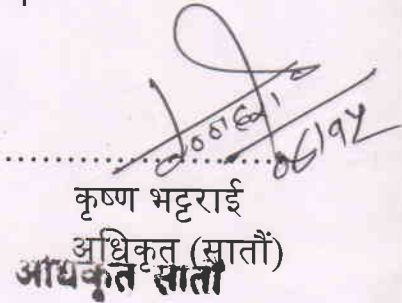 कृष्ण भट्टराई
अधिकृत (सातौं)
अधिकृत सातौं